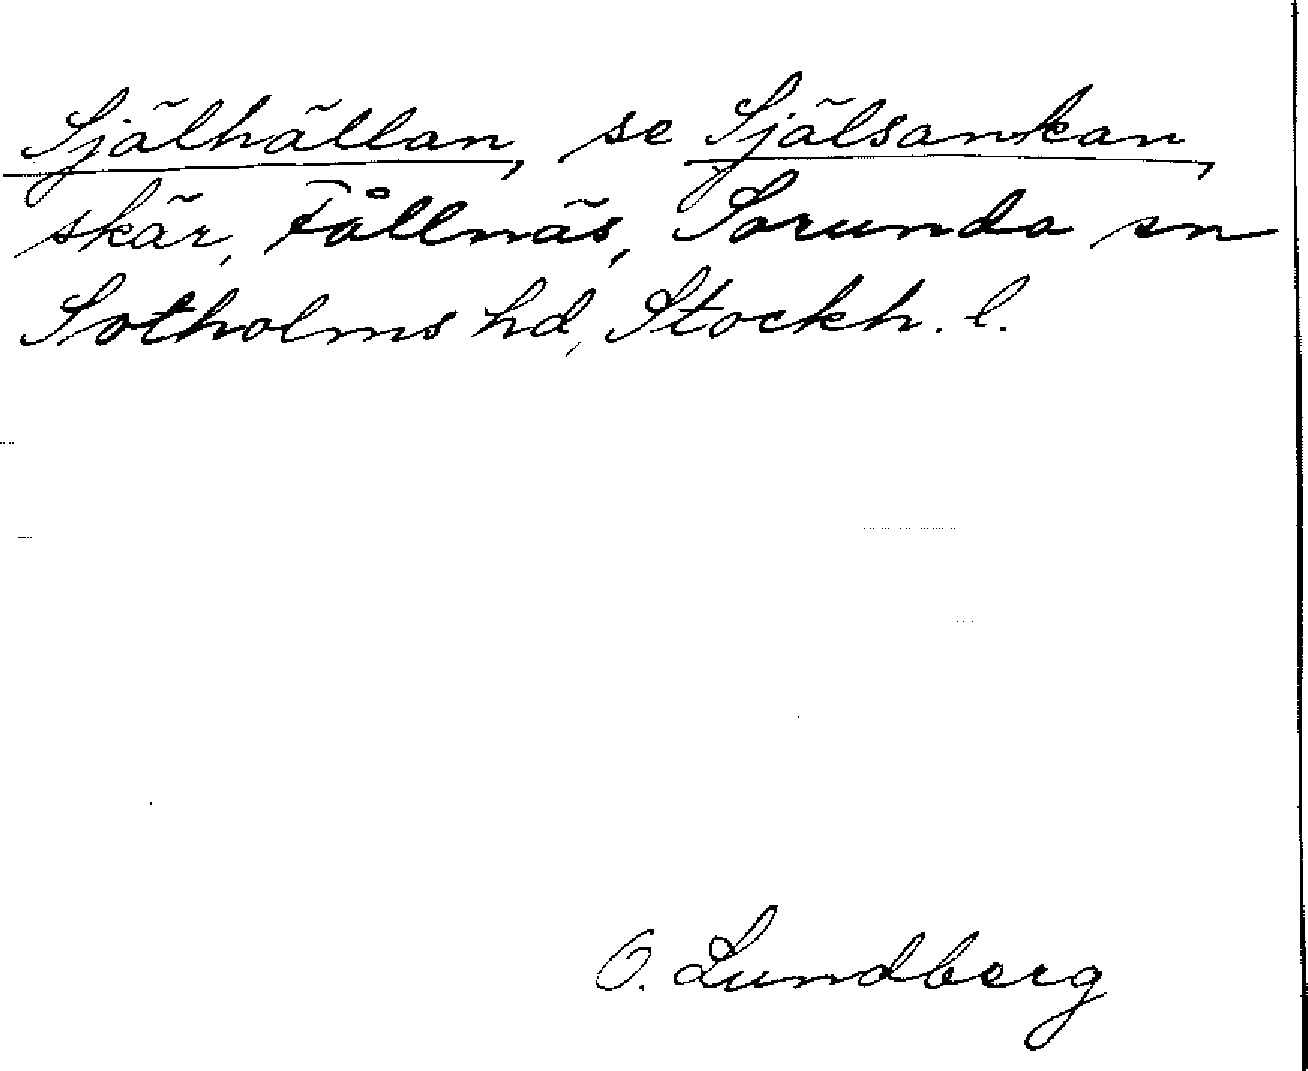 Själhällan, se Själsankan,
skär, Fållnäs, Sorunda sn
Sotholms hd, Stockh. l.
O. Lundberg